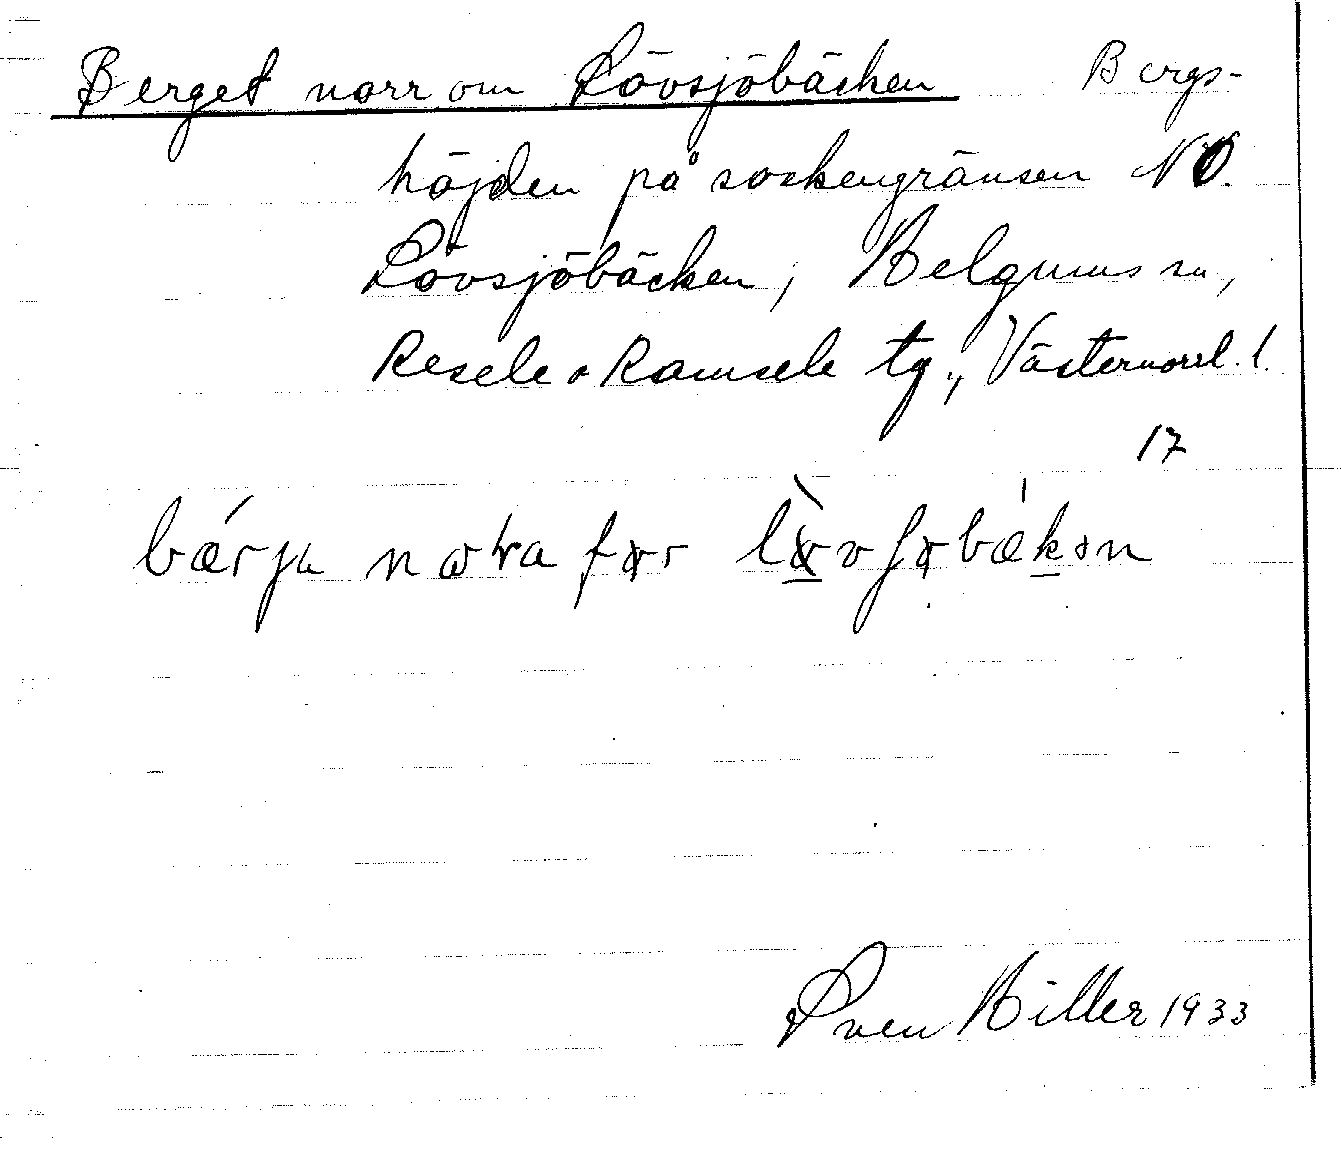 Berget norr om Lövsjöbäcken Bergs-
höjden på sockengränsen NO.
Lövsjöbäcken, Helgums sn,
Resele o Ramsele tg., Västernorrl. l.
17
Sven Hiller 1933